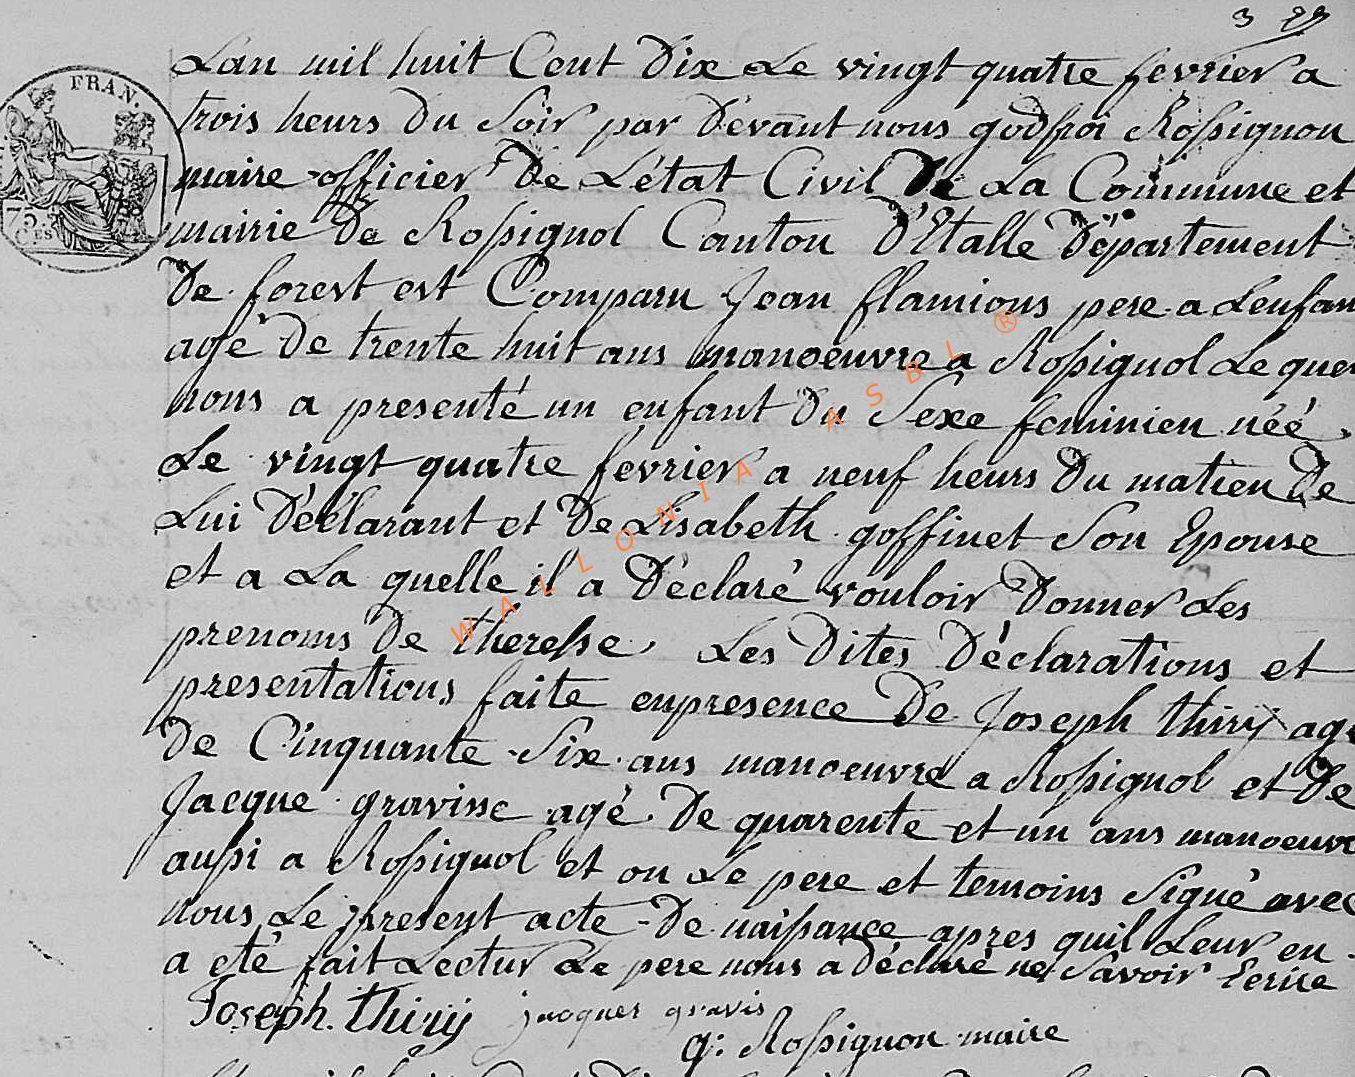 3 29
L'an mil huit Cent Dix Le vingt quatre fevrier a
trois heurs Du Soir par Dévant nous godfroi Rossignon
maire officier De L'état Civil De La Commune et
mairie De Rossignol Canton D'Etalle Département
De forest est Comparu Jean flamions pere a Lenfan
agé De trente huit ans manoeuvre a Rossignol Le quel
nous a presenté un enfant Du Sexe feminien néé
Le vingt quatre fevrier a neuf heurs Du matien De
Lui Déclarant et De Lisabeth goffinet Son Epouse
et a La quelle il a Déclaré vouloir Donner Les
prenoms De theresse. Les Dites Déclarations et
presentations faite enpresence De Joseph thiry agé
De Cinquante Six ans manoeuvre a Rossignol et De
Jacque gravisse agé De quarente et un ans manoeuvre
aussi a Rossignol et on Le pere et temoins Signé avec
nous Le present acte De naissance apres quil Leur en
a eté fait Lectur Le pere nous a Déclaré ne Savoir Ecrire
Joseph. thiry jacques gravis
g: Rossignon maire
FRAN.
75
CES
WALLONIA ASBL ®